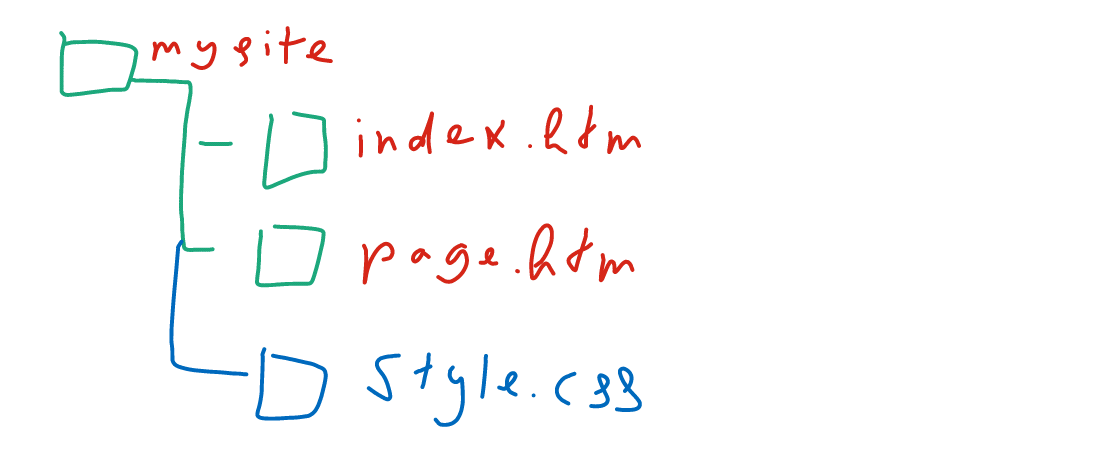 mysite
index.htm
page.htm
style.css